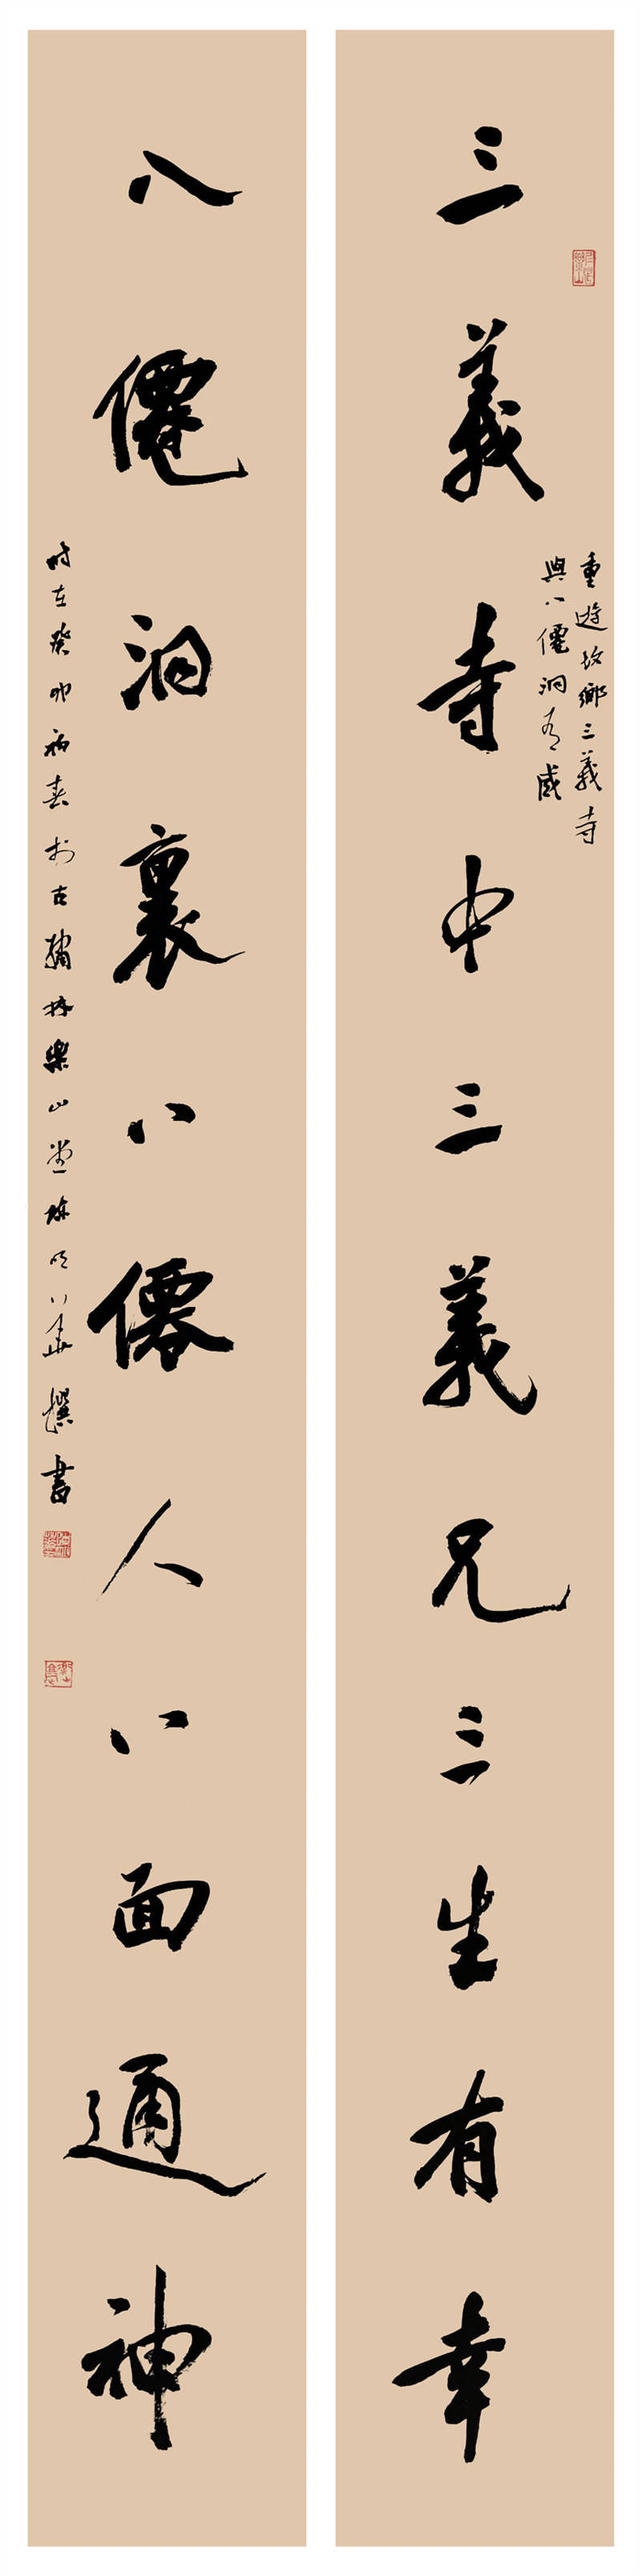 三義寺中三義兄三生有幸
重遊故鄉三義寺
與八僊洞有感
八僊洞裏八僊人八面通神
時在癸卯初春於古繡林樂山堂陳明華撰書